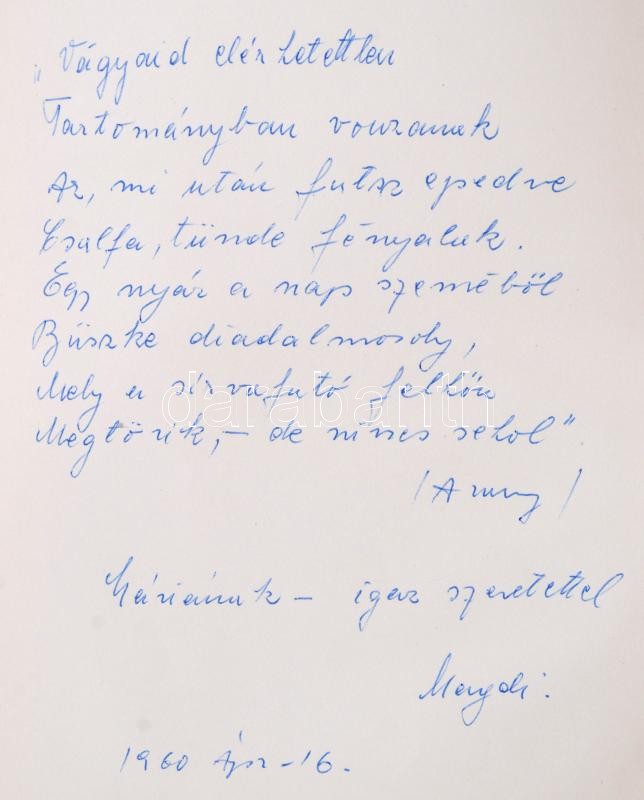 „Vágyaid elérhetetlen
Tartományban vonzanak
Az, mi után futsz epedve
Csalfa, tünde fényalak.
Egy nyár a nap szeméből
Büszke diadalmosoly,
Mely a sírvafutó felhőn
Megtörik, – de nincs sehol"
/Arany/
Máriának – igaz szeretettel
Magdi.
1960 Ápr – 16.
darabanth